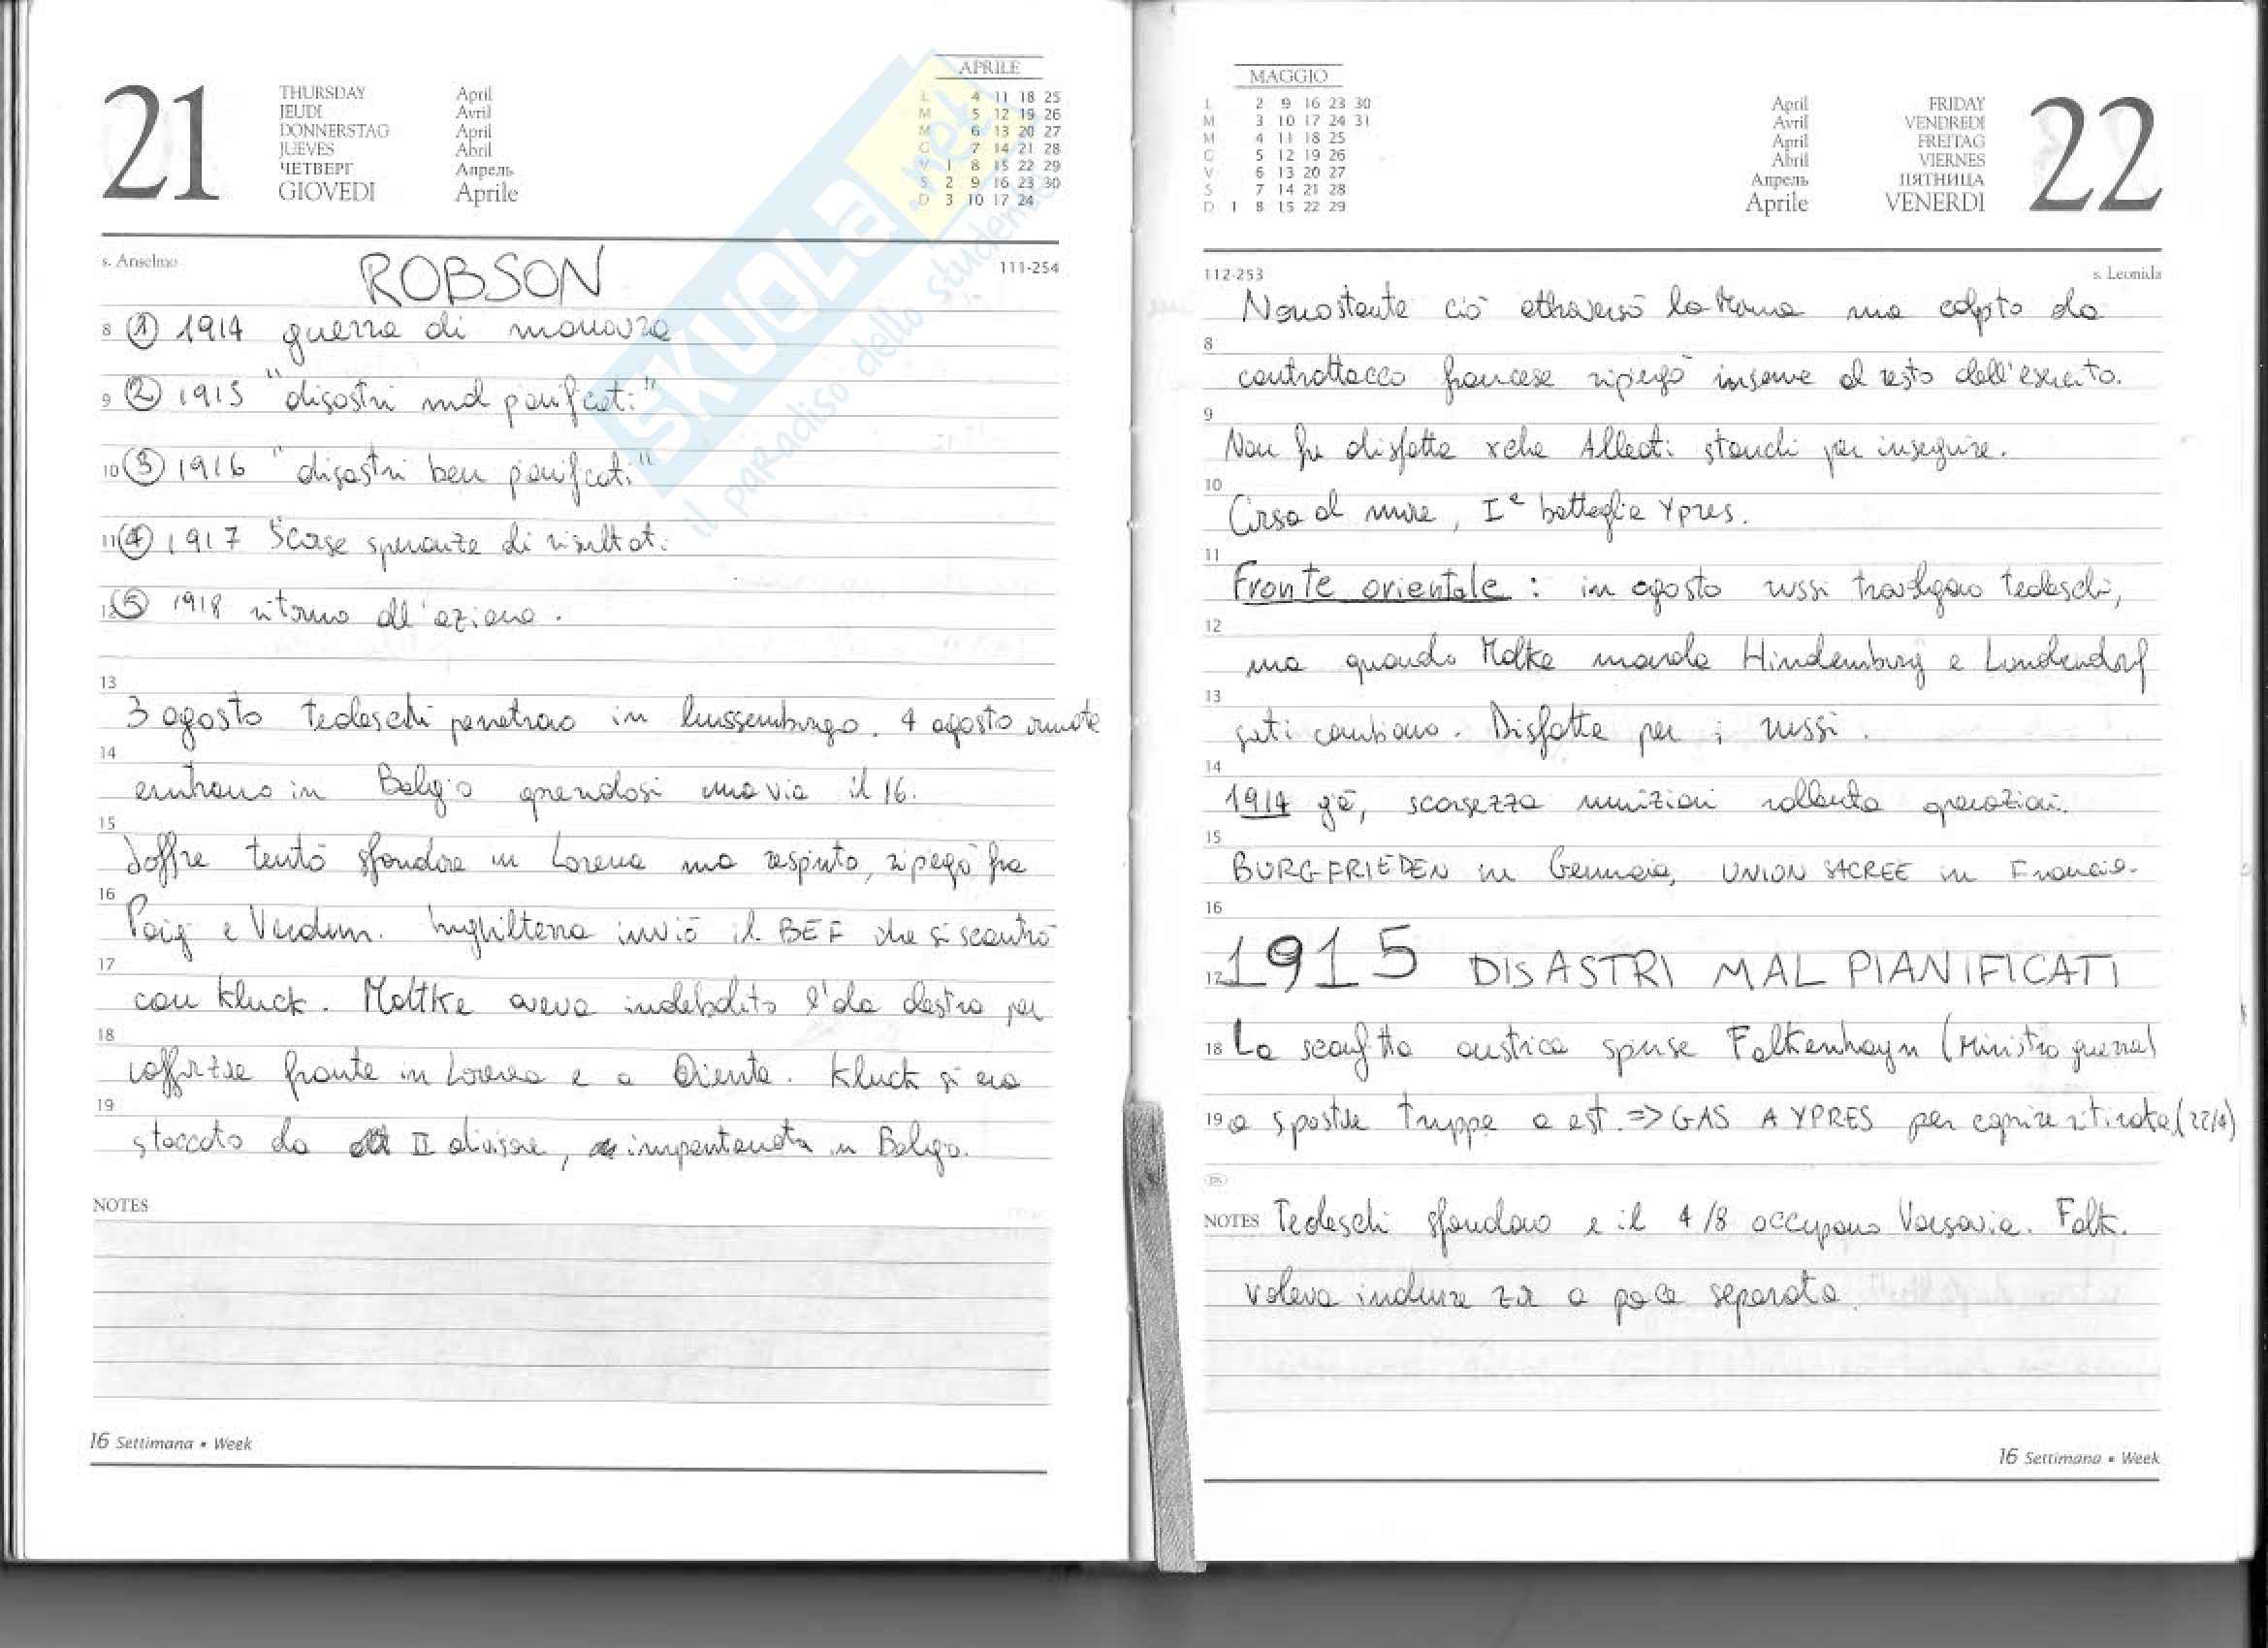 21
THURSDAY April
JEUDI Avril
DONNERSTAG April
JUEVES Abril
ЧЕТВЕРГ Апрель
GIOVEDI Aprile
APRILE
L 4 11 18 25
M 5 12 19 26
M 6 13 20 27
G 7 14 21 28
V 1 8 15 22 29
S 2 9 16 23 30
D 3 10 17 24
SKUOLA.net
il paradiso dello studente
s. Anselmo
111-254
ROBSON
8 ① 1914 guerra di manovra
9 ② 1915 "disastri mal pianificati"
10 ③ 1916 "disastri ben pianificati"
11 ④ 1917 Scarse speranze di risultati
12 ⑤ 1918 ritorno all'azione.
13
3 agosto tedeschi penetrano in Lussemburgo. 4 agosto
14
entrano in Belgio aprendosi una via il 16.
15
Joffre tentò sfondare in Lorena ma respinto, ripegò fra
16
Parigi e Verdun. Inghilterra inviò il BEF che si scontrò
17
con Kluck. Moltke aveva indebolito l'ala destra per
18
rafforzare fronte in Lorena e a Oriente. Kluck si era
19
staccato da II divisione, impantanata in Belgio.
NOTES
16 Settimana • Week
MAGGIO
L 2 9 16 23 30
M 3 10 17 24 31
M 4 11 18 25
G 5 12 19 26
V 6 13 20 27
S 7 14 21 28
D 1 8 15 22 29
April FRIDAY
Avril VENDREDI
April FREITAG
Abril VIERNES
Апрель ПЯТНИЦА
Aprile VENERDI
22
112-253
s. Leonida
Nonostante ciò attraversò la Marna ma colpito da
8
contrattacco francese ripiegò insieme al resto dell'esercito.
9
Non fu disfatta xche Alleati stanchi per inseguire.
10
Corsa al mare, Iª battaglia Ypres.
11
Fronte orientale : in agosto russi travolgono tedeschi,
12
ma quando Moltke manda Hindemburg e Londendorf
13
sorti cambiano. Disfatta per i russi.
14
1914 già, scarsezza munizioni rallenta operazioni.
15
BURGFRIEDEN in Germania, UNION SACREE in Francia.
16
17 1915 DISASTRI MAL PIANIFICATI
18 La sconfitta austriaca spinse Falkenhayn (Ministro guerra)
19 a spostare truppe a est. => GAS A YPRES per coprire ritirata (22/4)
NOTES Tedeschi sfondano e il 4/8 occupano Varsavia. Falk.
voleva indurre zar a pace separata.
16 Settimana • Week